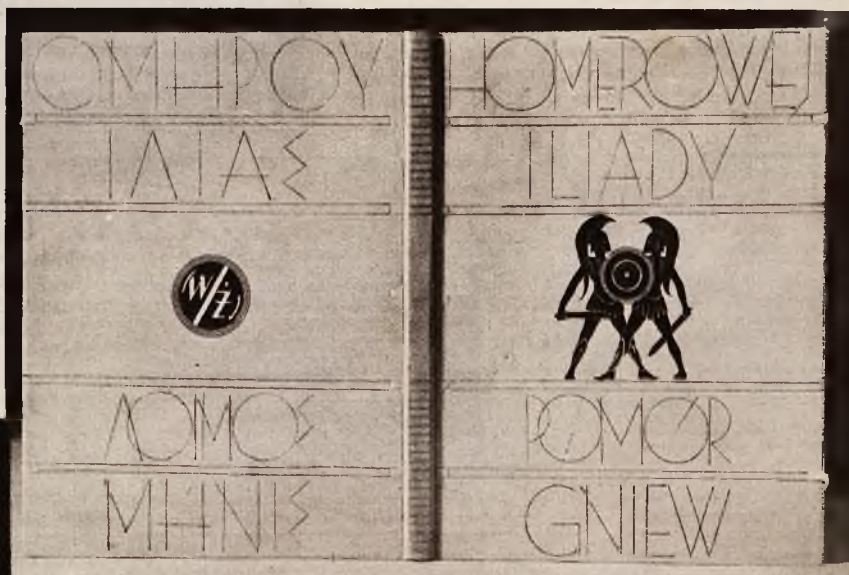 ΟΜΗΡΟΥ
ΙΛΙΑΣ
W/Ż
ΛΟΙΜΟΣ
ΜΗΝΙΣ
HOMEROWEJ
ILIADY
POMÓR
GNIEW